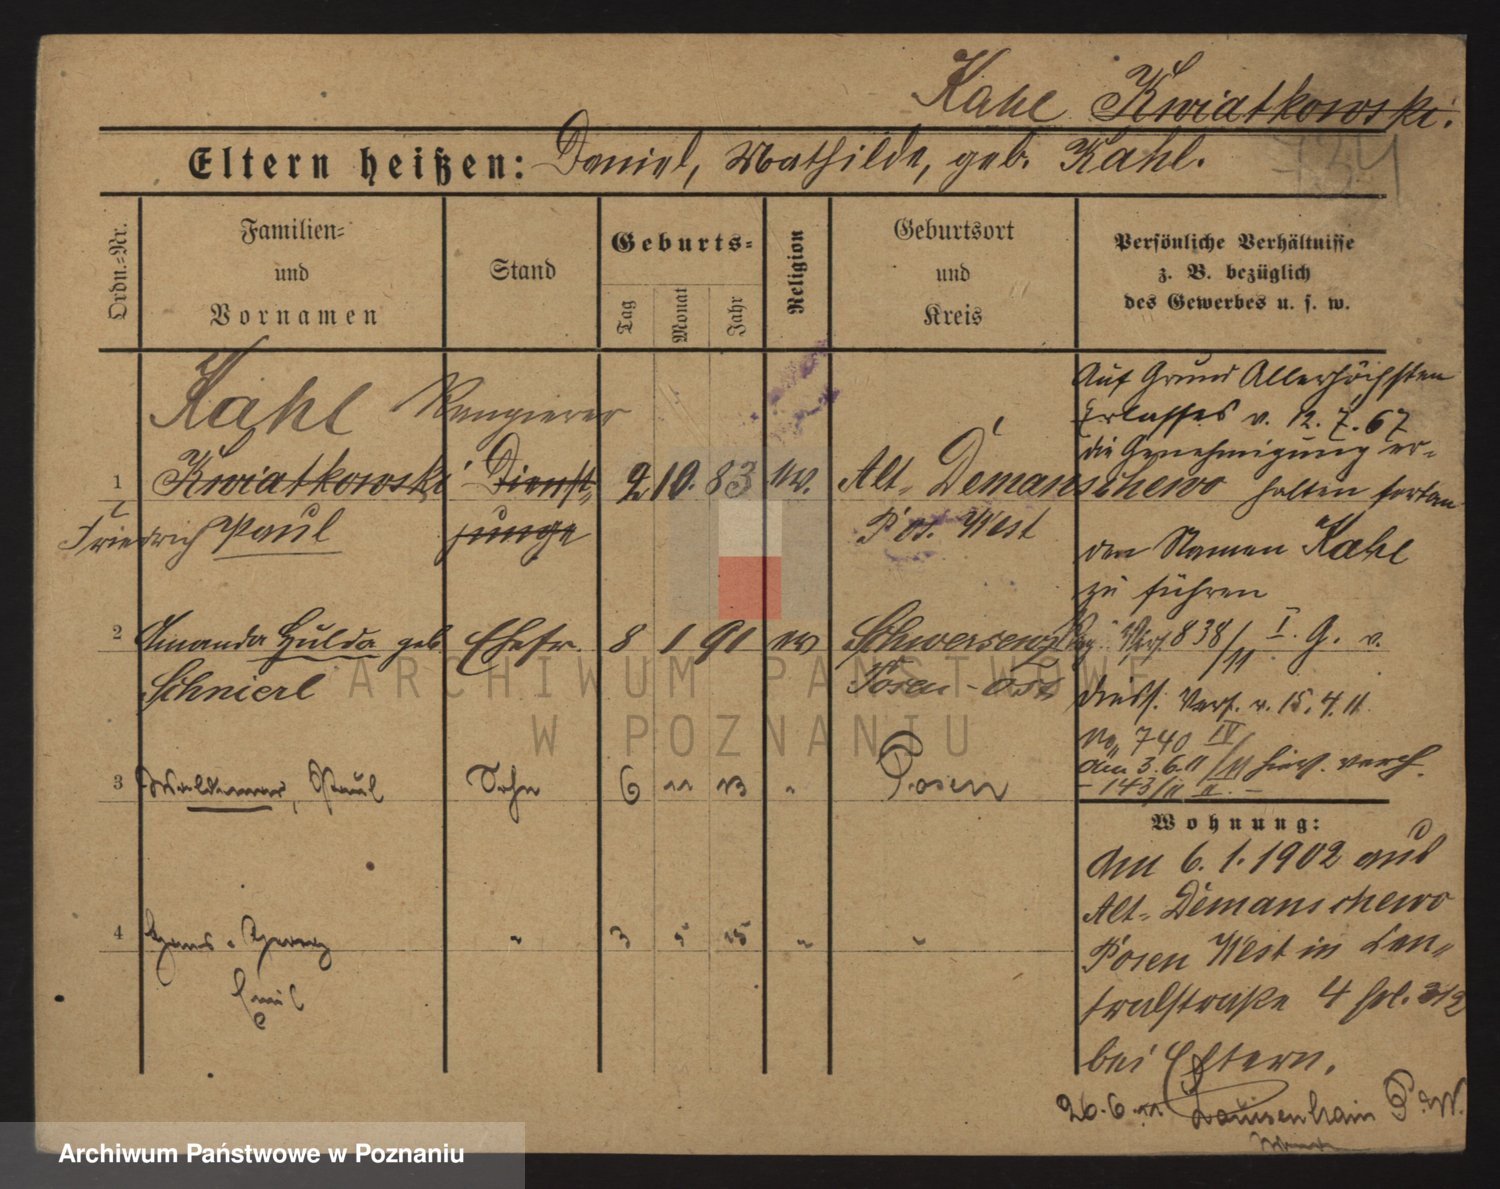 Kahl Kwiatkowski.
Eltern heißen: Daniel, Mathilde, geb. Kahl.
734
Ordn.=Nr.
Familien=
und
Vornamen
Stand
Geburts=
Tag
Monat
Jahr
Religion
Geburtsort
und
Kreis
Persönliche Verhältnisse
z. B. bezüglich
des Gewerbes u. s. w.
Kahl Rangierer
1 Kwiatkowski Dienst- 2 10. 83 ev. Alt-Demanschewo
Friedrich Paul junge Pos. West
2 Amanda Hulda geb. Ehefr. 8 1 91 ev Schwersenz
Schnierl Posen-Ost
3 Waldemar, Paul Sohn 6 11 13 " Posen
4 Hans " 3 5 15 " "
Emil
Auf Grund Allerhöchsten
Erlasses v. 12. 7. 67
die Genehmigung er-
halten fortan
den Namen Kahl
zu führen
Verf. 838/11 I. G. v.
diess. Verf. v. 15. 4. 11
No. 740 IV/11
am 3. 6. 11
- 143/11 II. -
Wohnung:
Am 6. 1. 1902 aus
Alt-Demanschewo
Posen West in Cen-
tralstraße 4 pol. 312
bei Eltern.
26. 6. 11. Louisenhain P. W.
ARCHIWUM PAŃSTWOWE
W POZNANIU
Archiwum Państwowe w Poznaniu